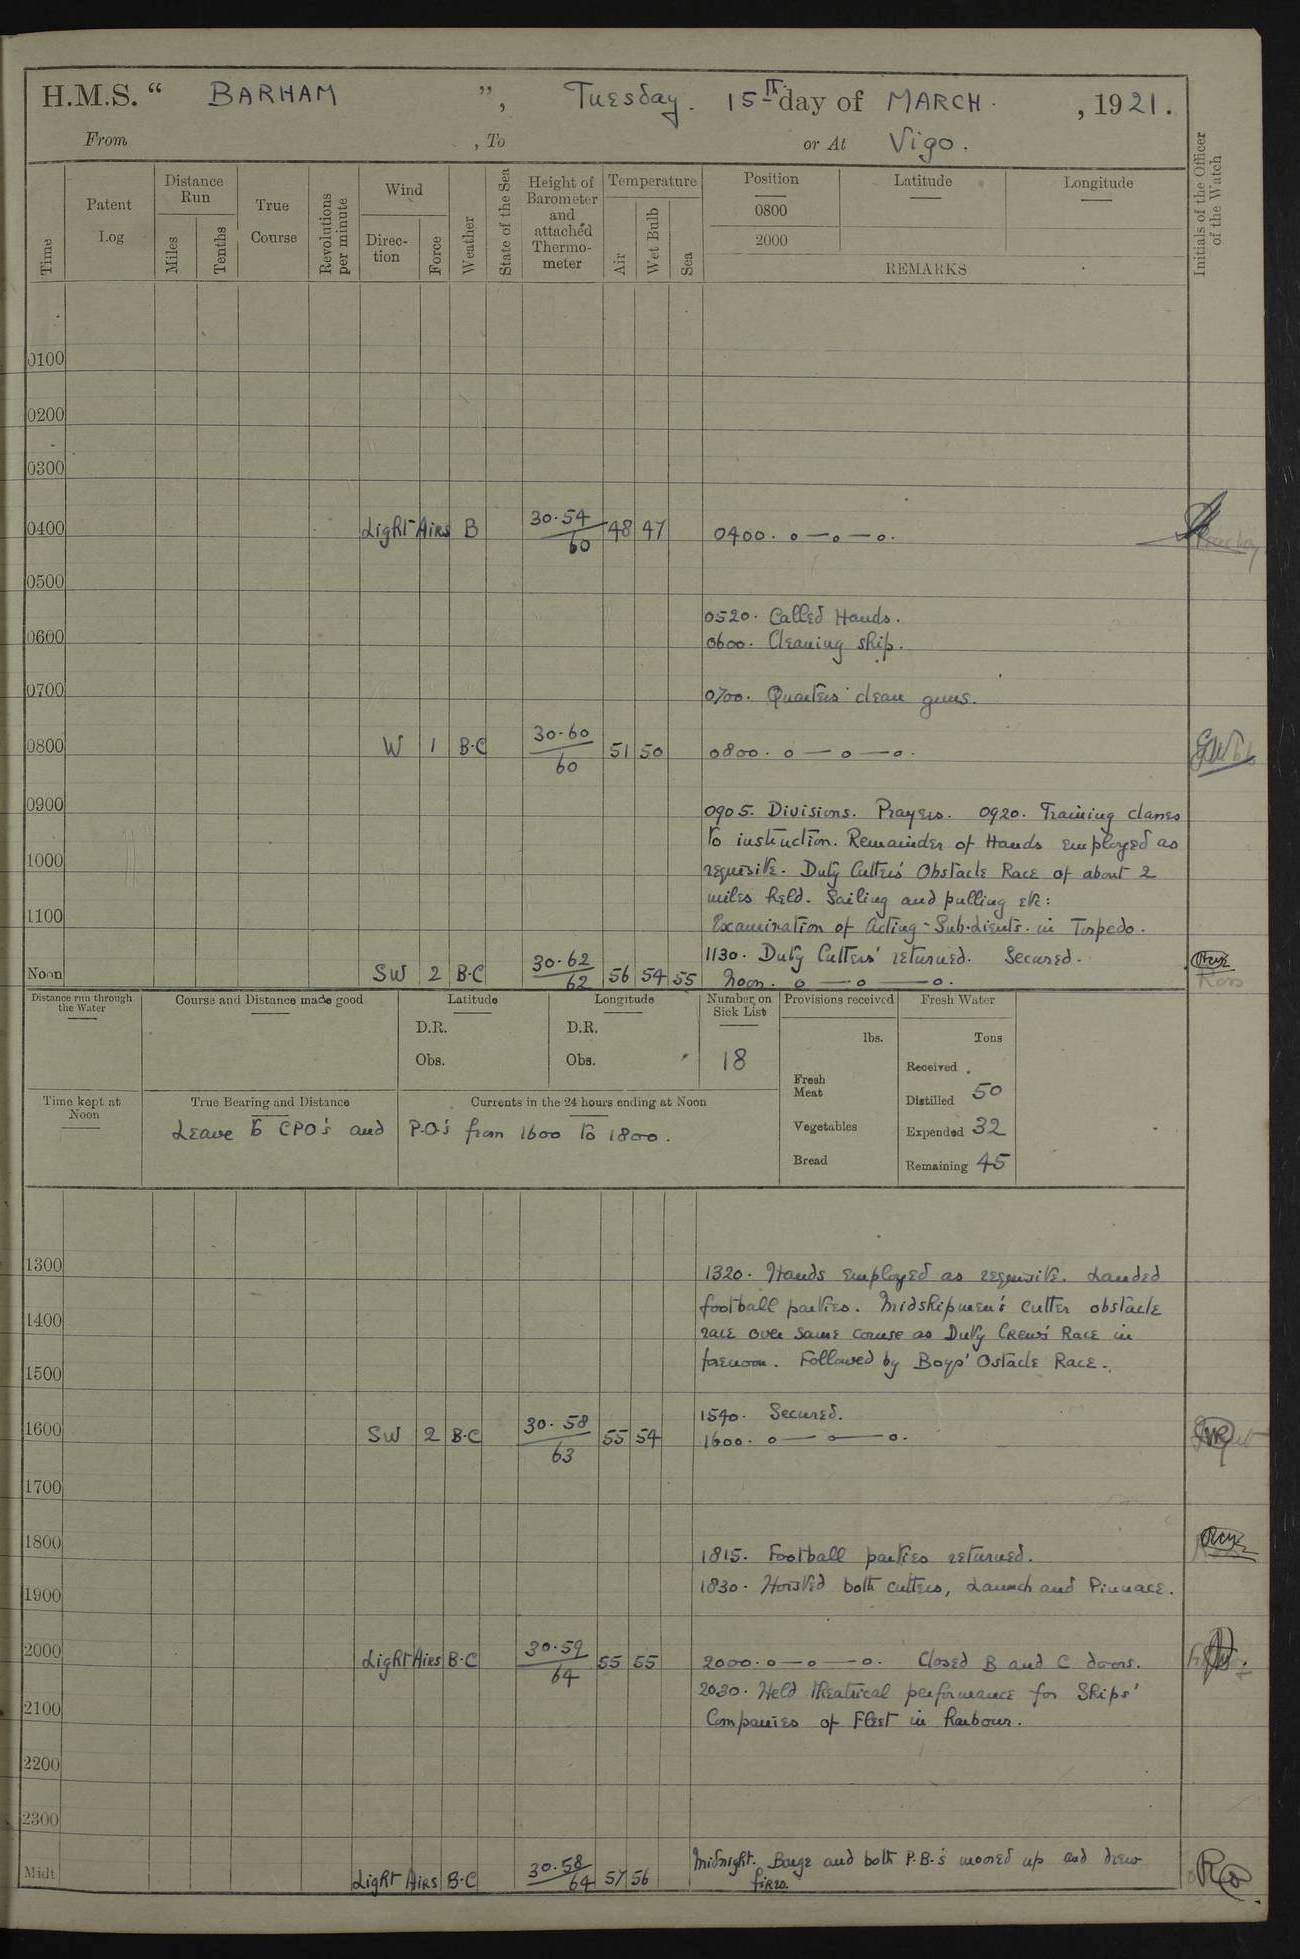 H.M.S. “ BARHAM ”, Tuesday. 15th day of MARCH. , 1921.
From , To or At Vigo.
Time
Patent Log
Distance Run
Miles
Tenths
True Course
Revolutions per minute
Wind
Direc-tion
Force
Weather
State of the Sea
Height of Barometer and attached Thermo-meter
Temperature
Air
Wet Bulb
Sea
Position
0800
2000
Latitude
Longitude
REMARKS
Initials of the Officer of the Watch
0100
0200
0300
0400 Light Airs B 30.54/60 48 47 0400. o — o — o.
0500
0520. Called Hands.
0600 0600. Cleaning ship.
0700 0700. Quarters clean guns.
0800 W 1 B.C 30.60/60 51 50 0800. o — o — o.
0900 0905. Divisions. Prayers. 0920. Training classes
to instruction. Remainder of Hands employed as
1000 requisite. Duty Cutters' Obstacle Race of about 2
miles held. Sailing and pulling etc:
1100 Examination of Acting-Sub-Lieuts. in Torpedo.
1130. Duty Cutters' returned. Secured.
Noon SW 2 B.C 30.62/62 56 54 55 Noon. o — o — o.
Distance run through the Water
Course and Distance made good
Latitude
D.R.
Obs.
Longitude
D.R.
Obs.
Number on Sick List
18
Provisions received
lbs.
Fresh Meat
Vegetables
Bread
Fresh Water
Tons
Received
Distilled 50
Expended 32
Remaining 45
Time kept at Noon
True Bearing and Distance
Currents in the 24 hours ending at Noon
Leave to CPO's and P.O's from 1600 to 1800.
1300 1320. Hands employed as requisite. Landed
football parties. Midshipmen's cutter obstacle
1400 race over same course as Duty Crews' Race in
forenoon. Followed by Boys' Ostacle Race.
1500
1540. Secured.
1600 SW 2 B.C 30.58/63 55 54 1600. o — o — o.
1700
1800 1815. Football parties returned.
1830. Hoisted both cutters, Launch and Pinnace.
1900
2000 Light Airs B.C 30.59/64 55 55 2000. o — o — o. Closed B and C doors.
2030. Held theatrical performance for Ships'
2100 Companies of Fleet in harbour.
2200
2300
Midt Light Airs B.C 30.58/64 57 56 Midnight. Barge and both P.B.'s moored up and drew
fires.